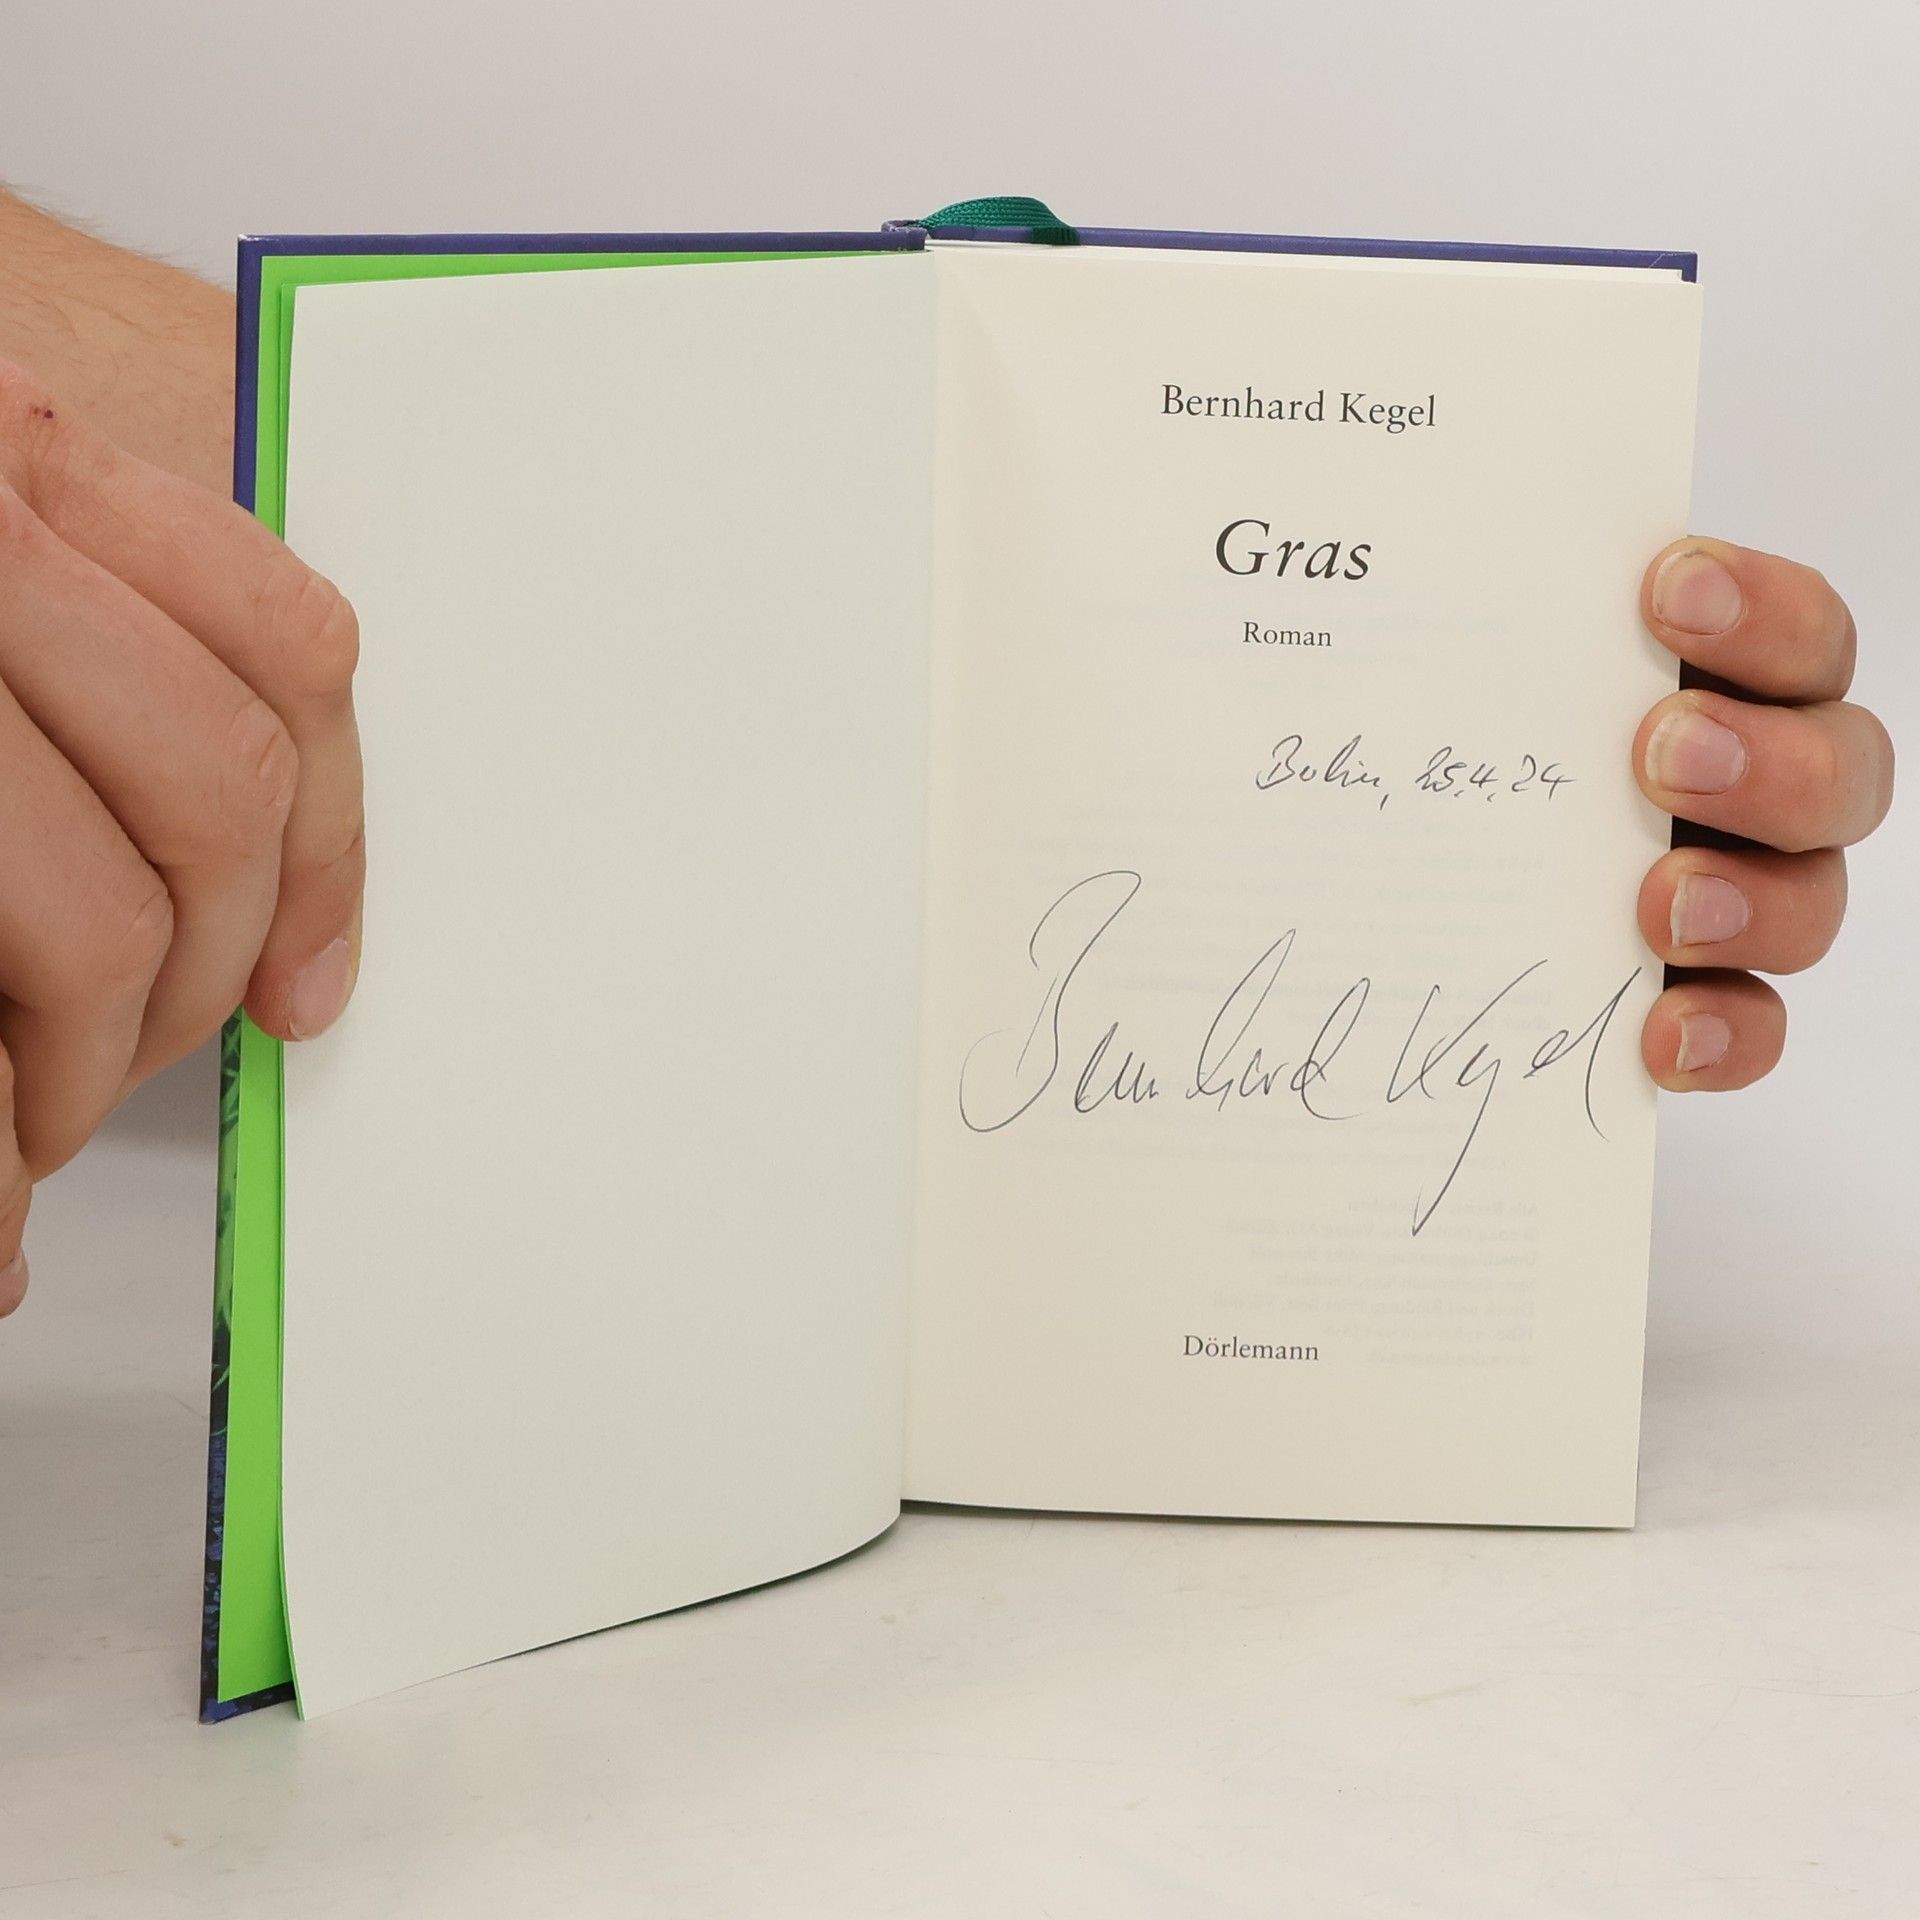 Bernhard Kegel
Gras
Roman
Berlin, 25.4.24
Bernhard Kegel
Dörlemann